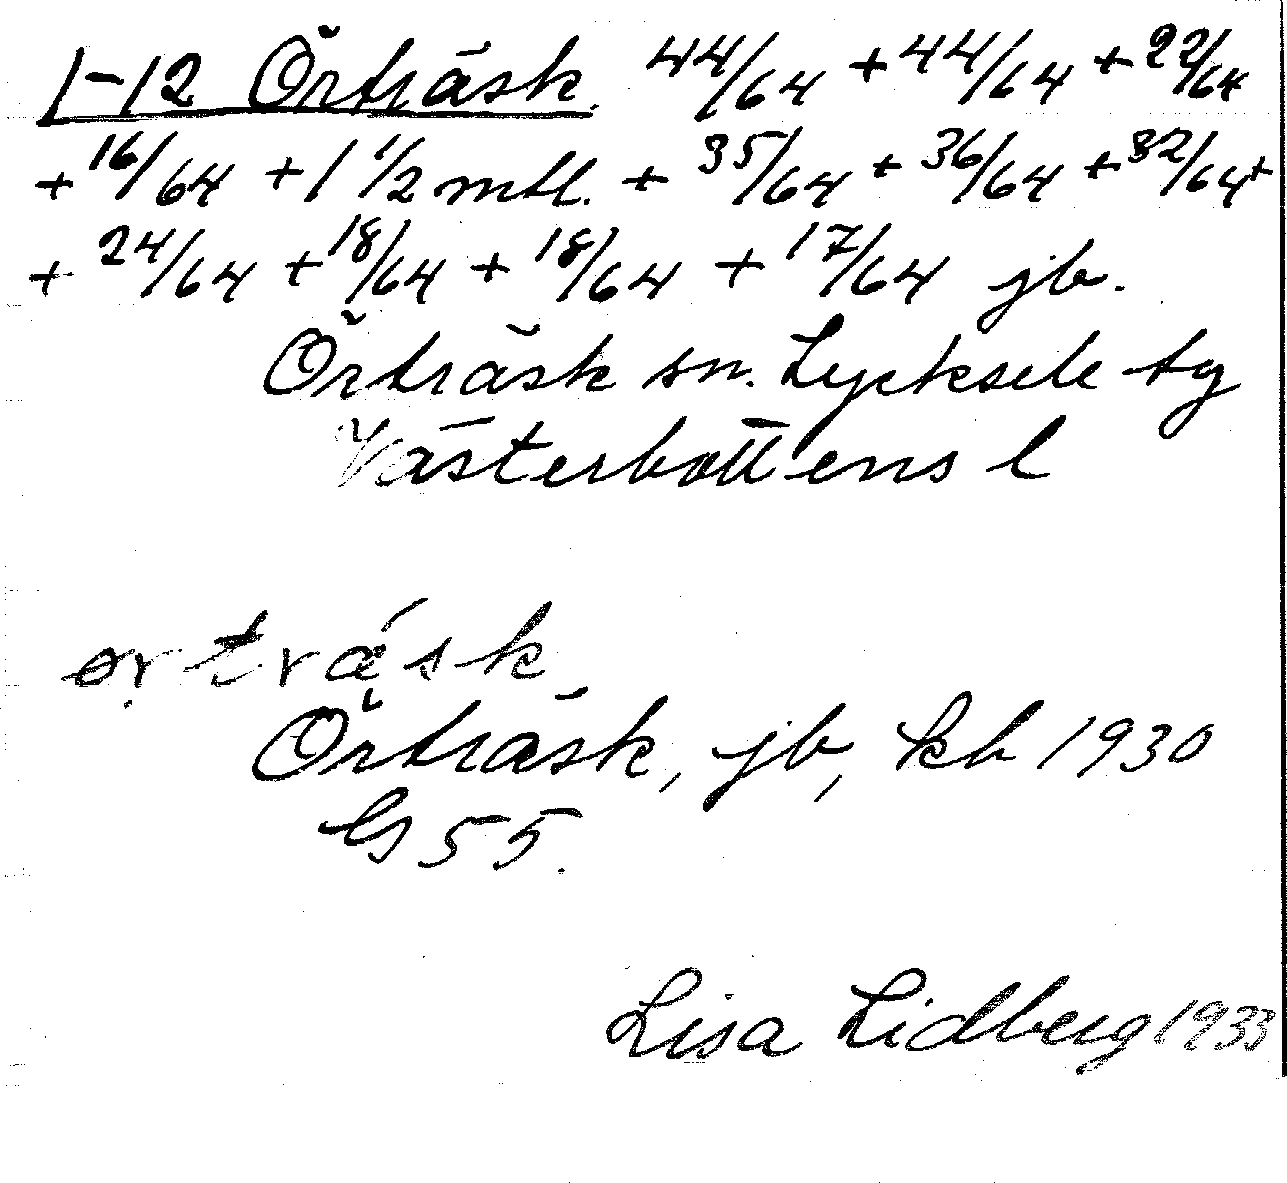 1-12 Örträsk. 44/64 + 44/64 + 22/64
+ 16/64 + 1 1/2 mtl. + 35/64 + 36/64 + 32/64 +
+ 24/64 + 18/64 + 18/64 + 17/64 jb.
Örträsk sn. Lycksele tg
Västerbottens l
ọrtræ´sk
Örträsk, jb, kb 1930
G 55.
Lisa Lidberg 1933